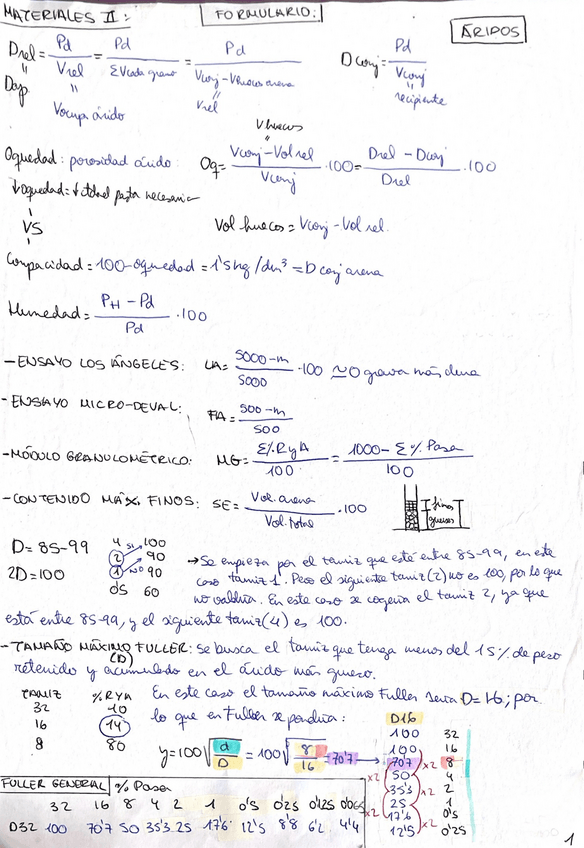 MATERIALES II:
FORMULARIO:
ÁRIDOS
Drel = Pd / Vrel = Pd / ΣVcada grano = Pd / Vconj - Vhuecos arena
Dconj = Pd / Vconj
Dap
Vocupa árido
Vrel
recipiente
Vhuecos
Oquedad: porosidad árido: Oq = Vconj - Vol rel / Vconj · 100 = Drel - Dconj / Drel · 100
↓oquedad = ↓ total pasta necesaria
VS
Vol huecos = Vconj - Vol rel.
Compacidad = 100 - oquedad = 1'5 kg/dm³ = D conj arena
Humedad = PH - Pd / Pd · 100
- ENSAYO LOS ÁNGELES: LA = 5000 - m / 5000 · 100 ≃ 0 grava más dura
- ENSAYO MICRO-DEVAL: FA = 500 - m / 500
- MÓDULO GRANULOMÉTRICO: MG = Σ%RyA / 100 = 1000 - Σ % Pasa / 100
- CONTENIDO MÁX. FINOS: SE = Vol. arena / Vol. total · 100
finos
gruesos
D = 85-99
2D = 100
4 SI 100
2 90
1 NO 90
0'5 60
→ Se empieza por el tamiz que esté entre 85-99, en este
caso tamiz 1. Pero el siguiente tamiz (2) no es 100, por lo que
no valdría. En este caso se cogería el tamiz 2, ya que
está entre 85-99, y el siguiente tamiz (4) es 100.
- TAMAÑO MÁXIMO FULLER: Se busca el tamiz que tenga menos del 15% de peso
(D)
retenido y acumulado en el árido más grueso.
TAMIZ % RYA
32 10
16 14
8 80
En este caso el tamaño máximo Fuller sería D=16; por
lo que en Fuller se pondría:
y = 100 √ d / D = 100 √ 8 / 16 = 70'7
D16
100 32
100 16
70'7 8
50 4
35'3 2
25 1
17'6 0'5
12'5 0'25
x2 x2
x2 x2
FULLER GENERAL % Pasa
32 16 8 4 2 1 0'5 0'25 0'125 0'063
D32 100 70'7 50 35'3 25 17'6 12'5 8'8 6'2 4'4
1